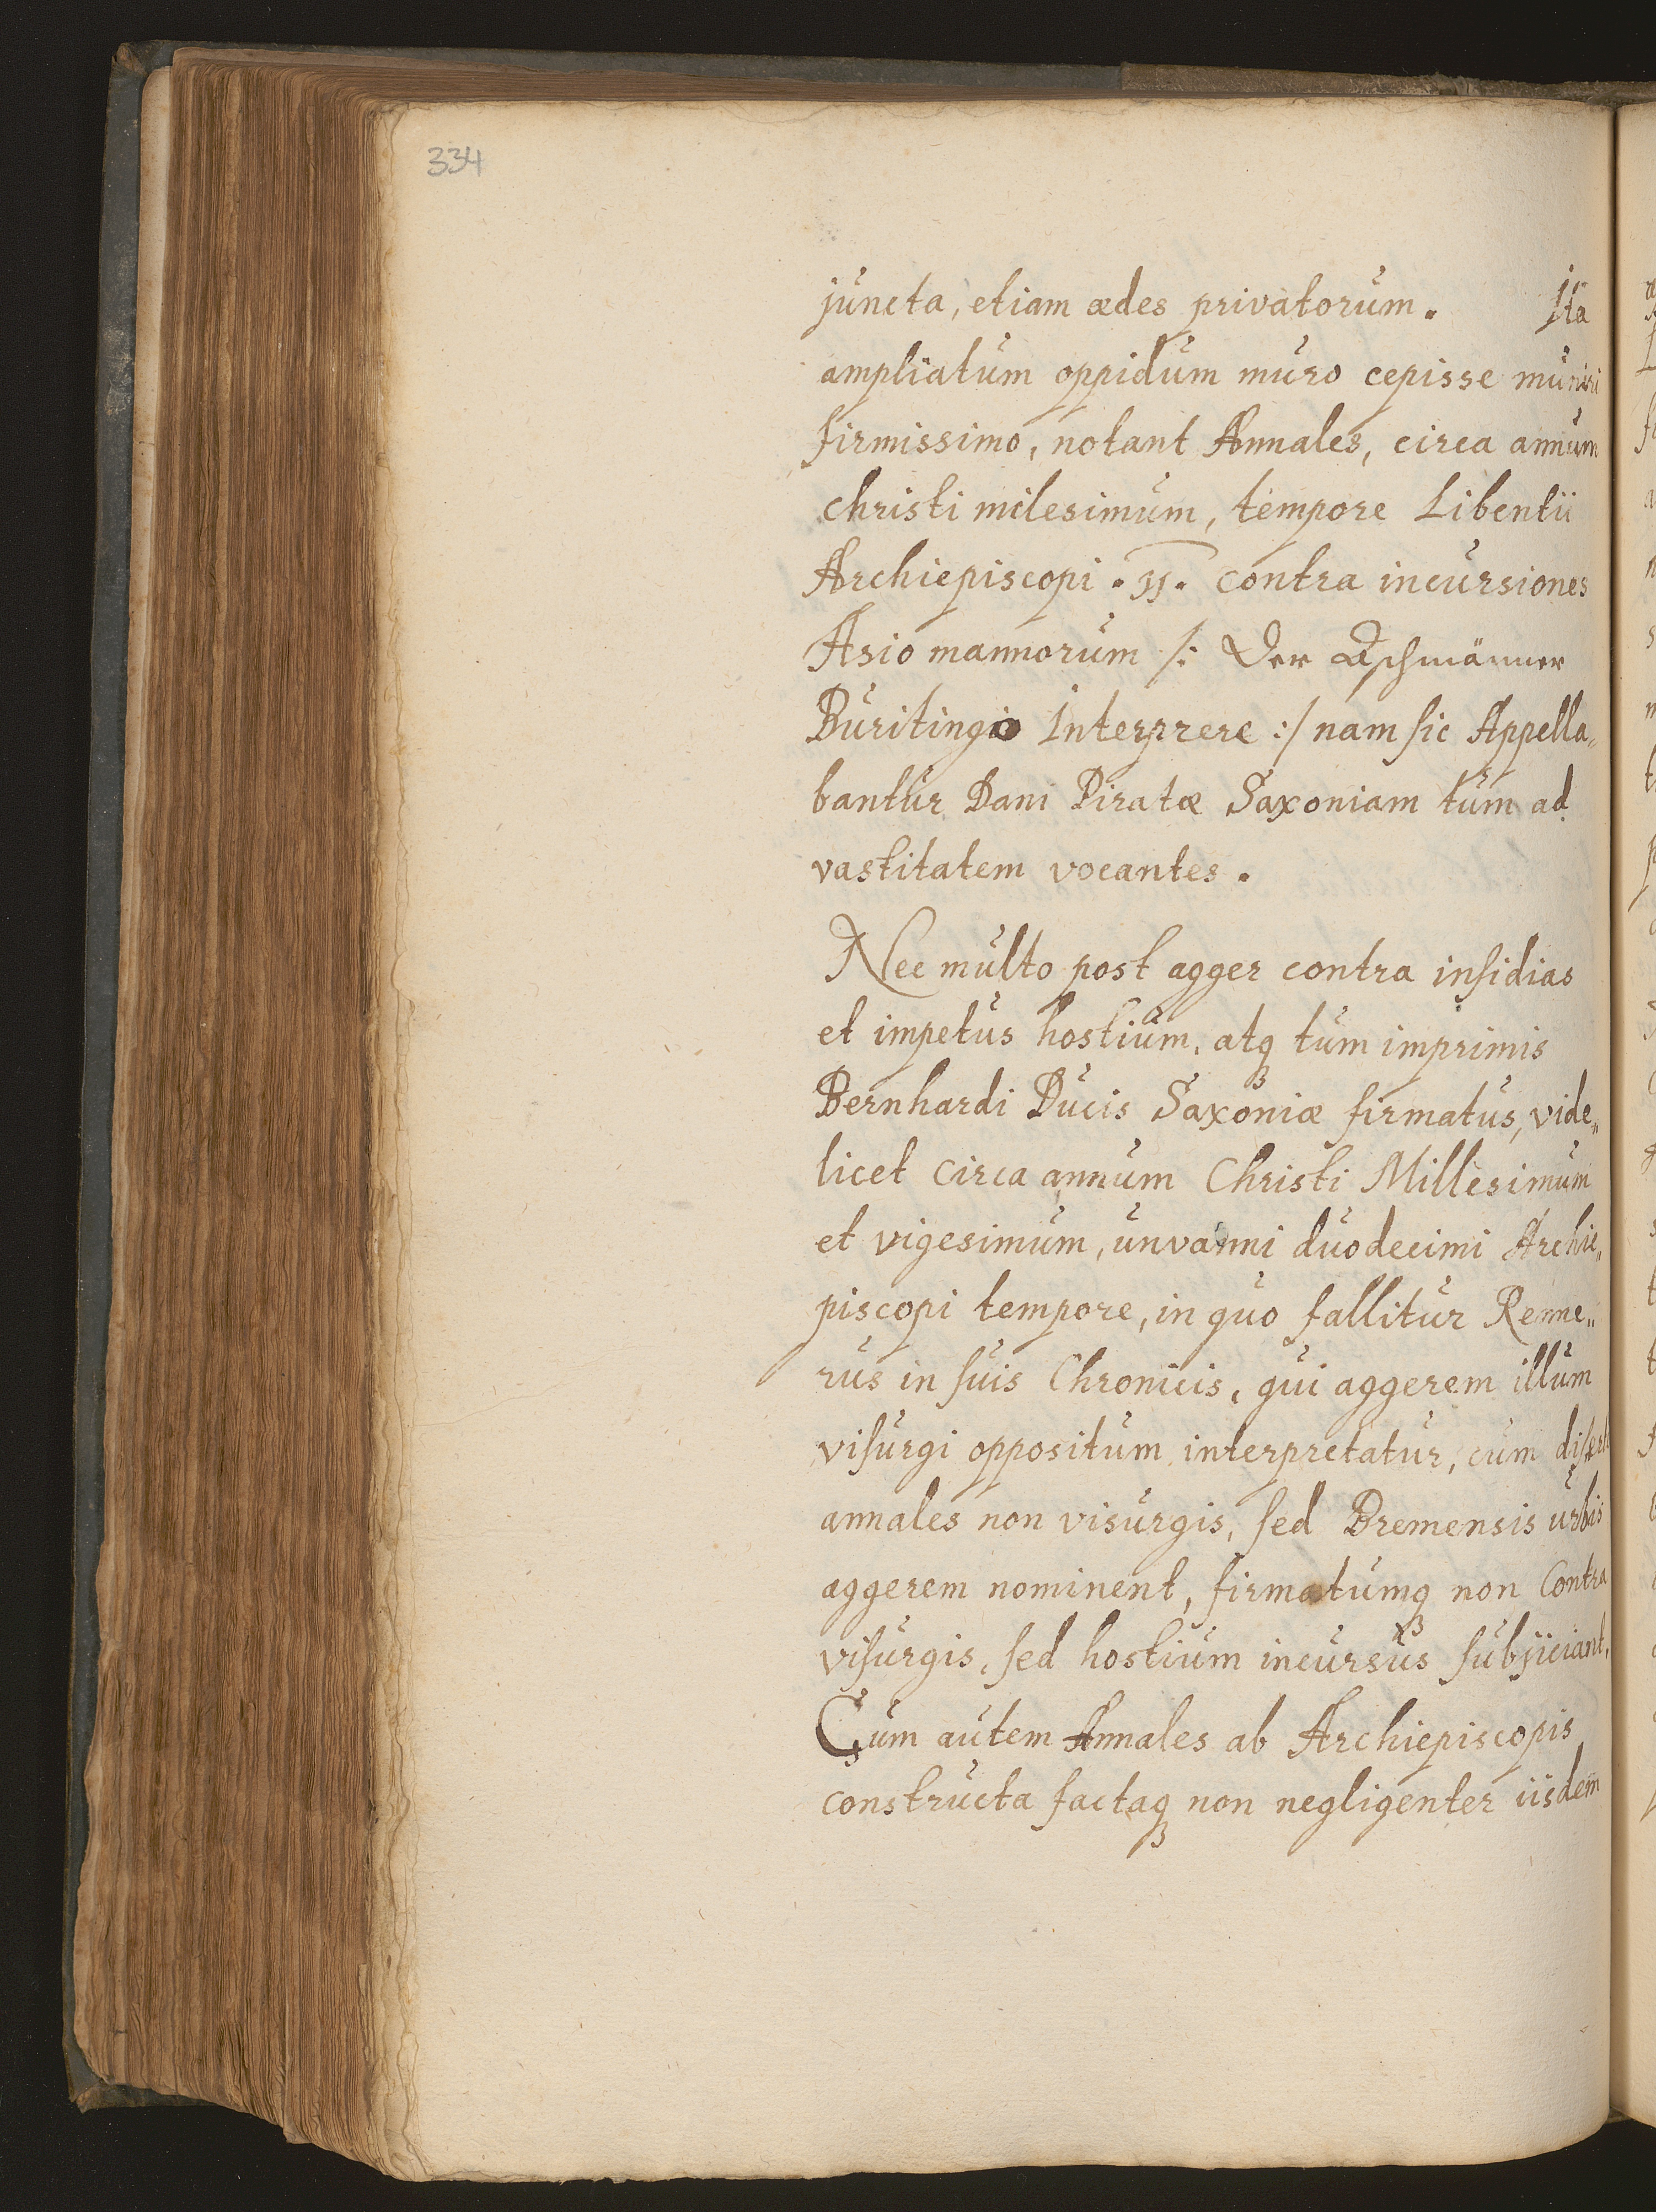 334
juncta, etiam ædes privatorum. Ita
ampliatum oppidum muro cepisse muniri
firmissimo, notant Annales, circa annum
christi milesimum, tempore Libentii
Archiepiscopi . 11. contra incursiones
Asio mannorum /: Der Aschmänner
Buritingio Interprere :/ nam sic Appella„
bantur Dani Piratæ Saxoniam tum ad
vastitatem vocantes.
Nec multo post agger contra insidias
et impetus hostium, atq3 tum imprimis
Bernhardi Ducis Saxoniæ firmatus, vide„
licet circa annum Christi Millesimum
et vigesimum, unvanni duodecimi Archie„
piscopi tempore, in quo fallitur Renne„
rus in suis Chronicis, qui aggerem illum
visurgi oppositum interpretatur, cum
annales non visurgis, sed Bremensis urbis
aggerem nominent, firmatumq3 non Contra
visurgis, sed hostium incursus subjiciant.
Cum autem Annales ab Archiepiscopis
constructa factaq3 non negligenter iisdem